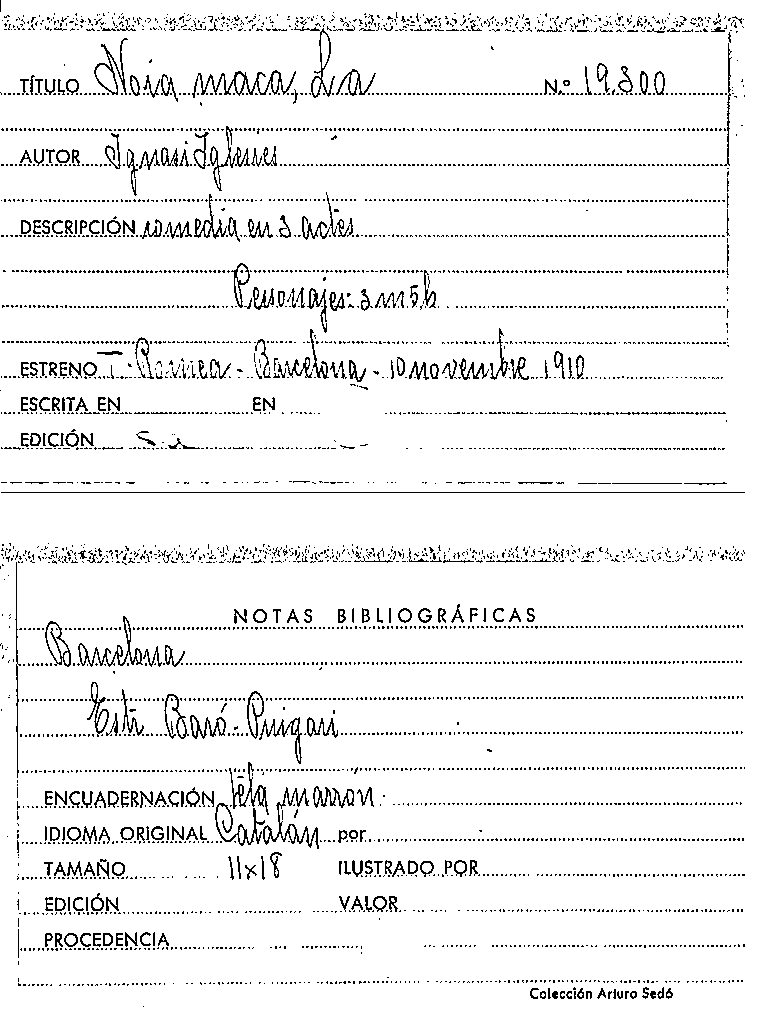 TÍTULO Noia maca, La N.º 19.300
AUTOR Ignasi Iglesies
DESCRIPCIÓN comedia en 3 actes
Personajes: 3 m 5 h
ESTRENO T. Romea - Barcelona - 10 novembre 1910
ESCRITA EN EN
EDICIÓN
NOTAS BIBLIOGRÁFICAS
Barcelona
Estr Baró - Puigari
ENCUADERNACIÓN tela marrón
IDIOMA ORIGINAL Catalán por
TAMAÑO 11x18 ILUSTRADO POR
EDICIÓN VALOR
PROCEDENCIA
Colección Arturo Sedó